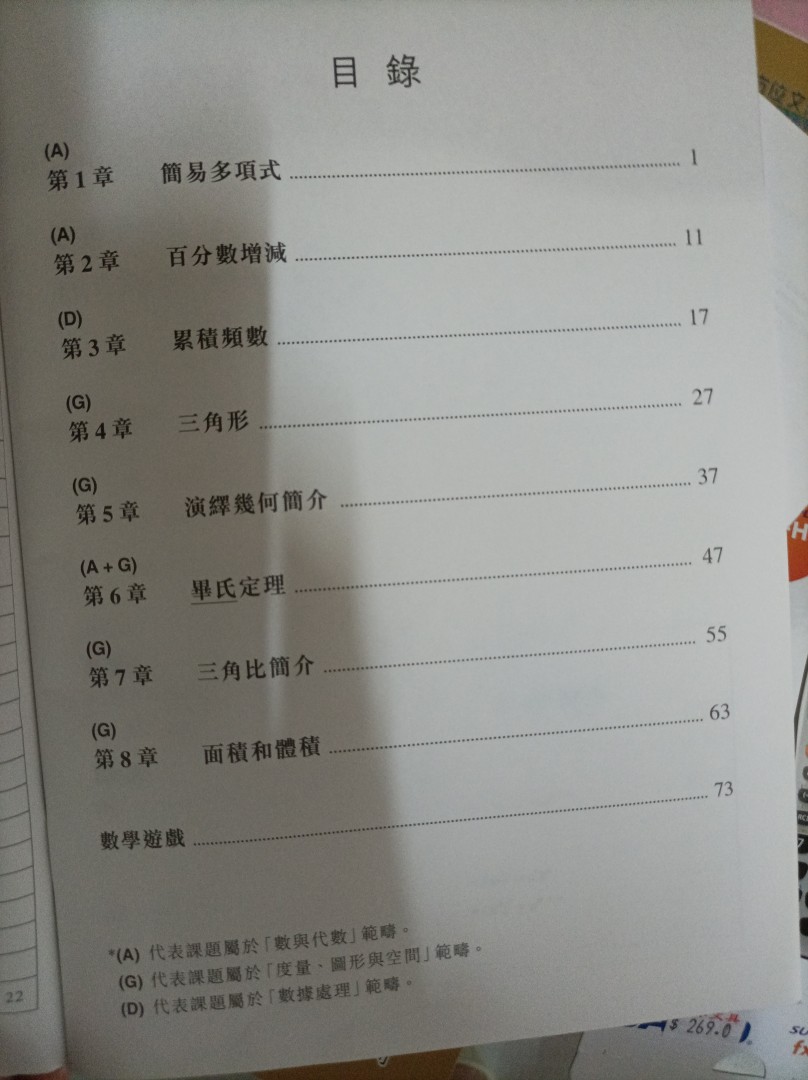 目 錄
(A)
第 1 章 簡易多項式 1
(A)
第 2 章 百分數增減 11
(D)
第 3 章 累積頻數 17
(G)
第 4 章 三角形 27
(G)
第 5 章 演繹幾何簡介 37
(A + G)
第 6 章 畢氏定理 47
(G)
第 7 章 三角比簡介 55
(G)
第 8 章 面積和體積 63
數學遊戲 73
*(A) 代表課題屬於「數與代數」範疇。
(G) 代表課題屬於「度量、圖形與空間」範疇。
(D) 代表課題屬於「數據處理」範疇。
22
$ 269.0